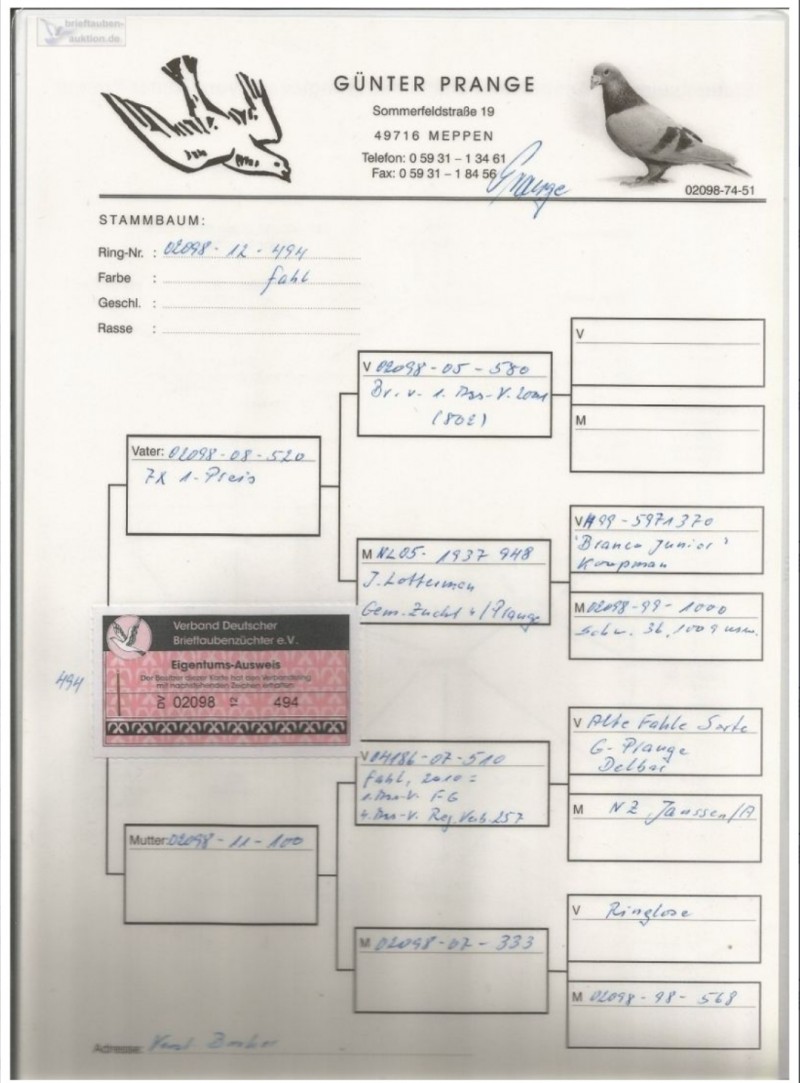 brieftauben-
auktion.de
GÜNTER PRANGE
Sommerfeldstraße 19
49716 MEPPEN
Telefon: 0 59 31 – 1 34 61
Fax: 0 59 31 – 1 84 56
Prange
02098-74-51
STAMMBAUM:
Ring-Nr. : 02098 - 12 - 494
Farbe : fahl
Geschl. :
Rasse :
V
M
V 02098 - 05 - 580
Br. v. 1. As-V. 2001
(802)
Vater: 02098 - 08 - 520
7x 1. Preis
M NL05 - 1937948
J. Lotterman
Gem. Zucht /Prange
V 99 - 5971370
'Branco Junior'
Koopman
M 02098 - 99 - 1000
Schw. 36, 1009 usw.
Verband Deutscher
Brieftaubenzüchter e.V.
Eigentums-Ausweis
Der Besitzer dieser Karte hat den Verbandsring
mit nachstehenden Zeichen erhalten
DV 02098 12 494
494
V 04186 - 07 - 510
fahl, 2010 =
1. As-V. FG
4. As-V. Reg. Verb. 257
V Alte Fahle Sorte
G. Prange
Delbar
M NZ Janssen/A
Mutter: 02098 - 11 - 100
M 02098 - 07 - 333
V Ringlose
M 02098 - 98 - 568
Adresse: